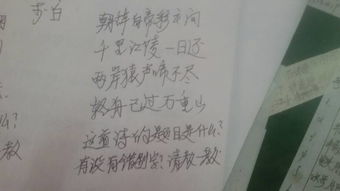 李白
朝辞白帝彩云间
千里江陵一日还
两岸猿声啼不尽
轻舟已过万重山
么?
这首诗的题目是什么?
教
有没有错别字?请教一教